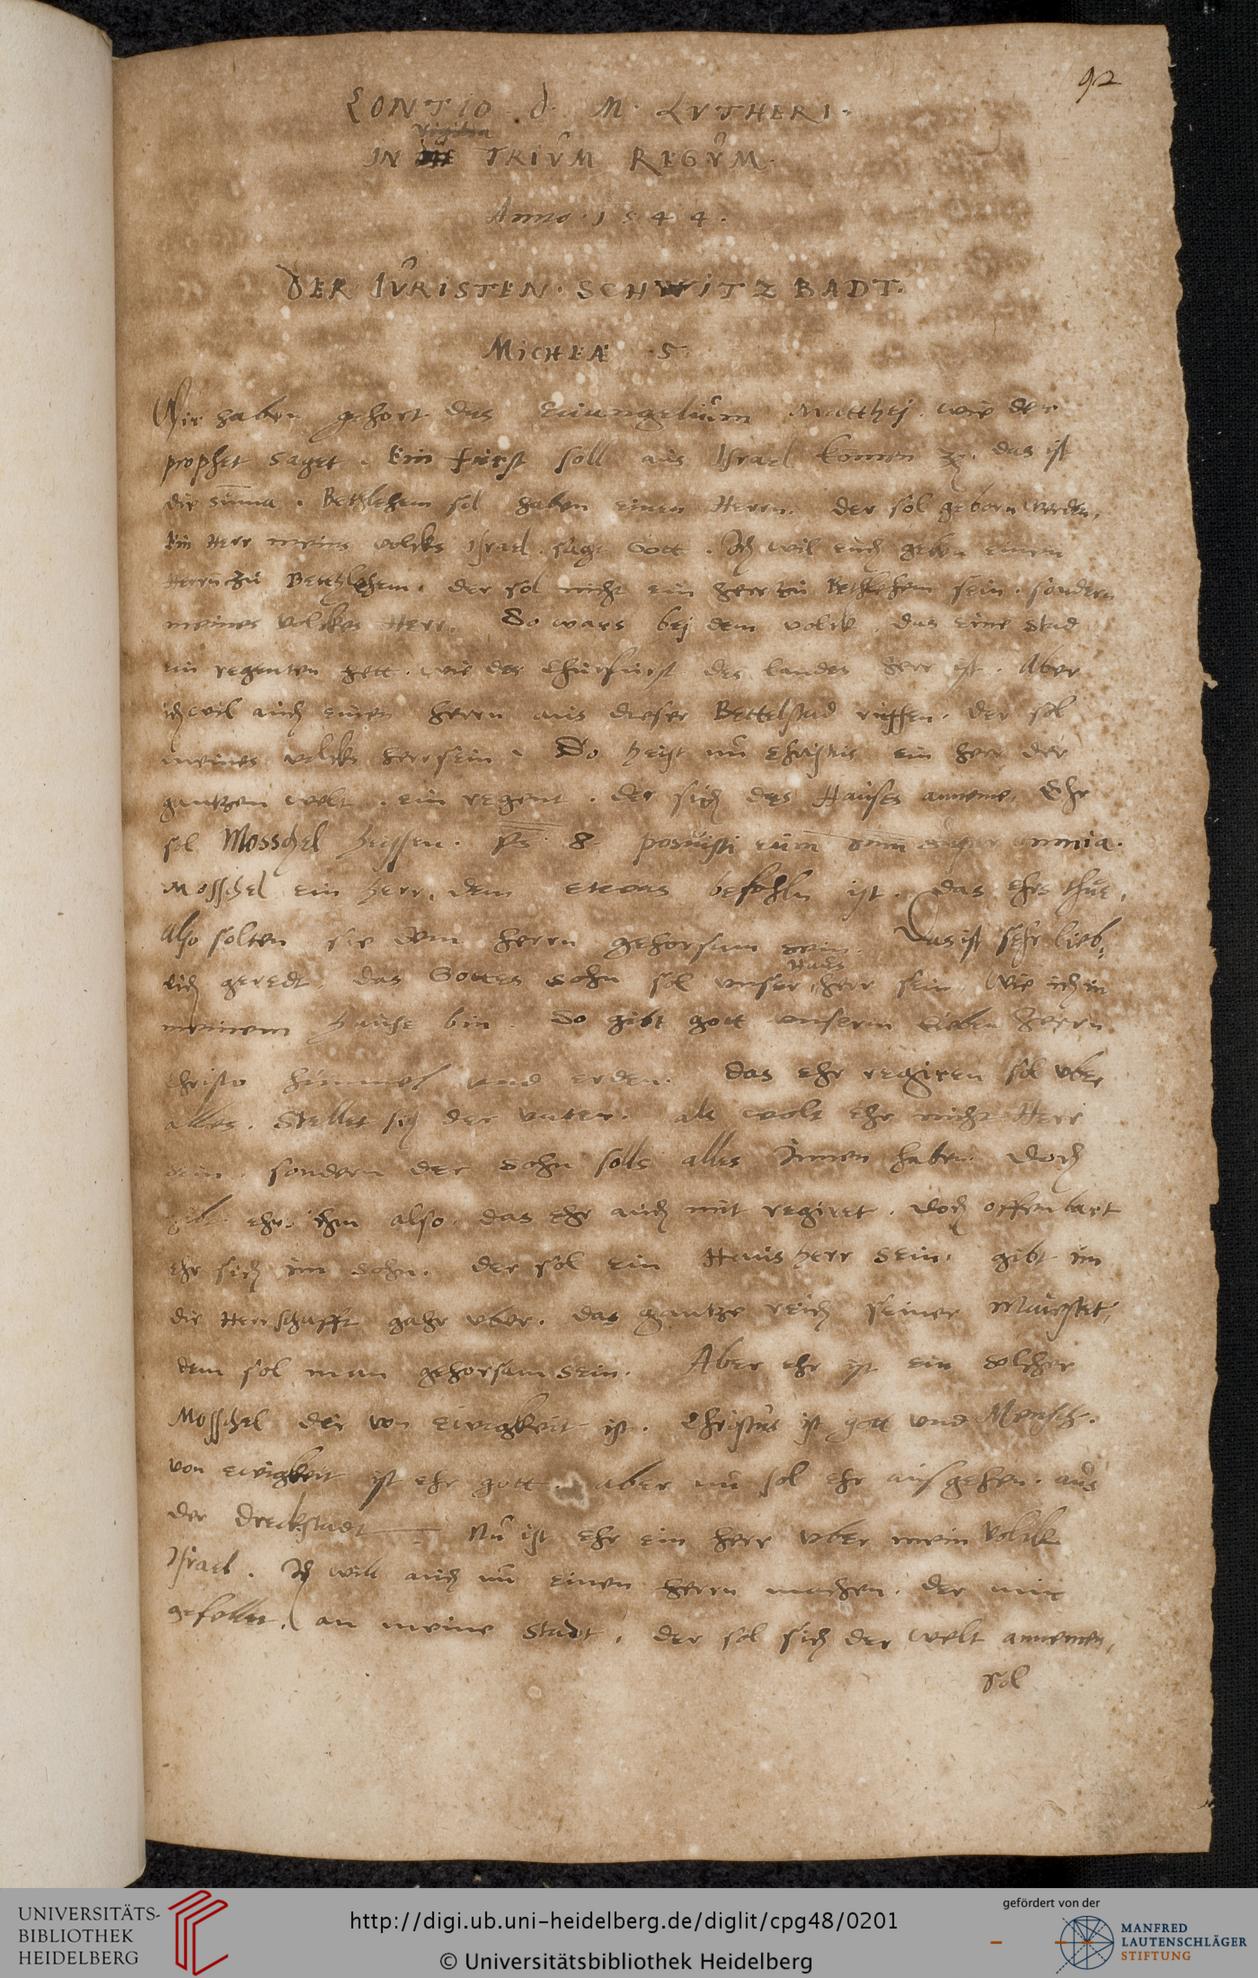 92
CONTIO d. M. LVTHERI.
vigilia
IN TRIVM REGVM.
Anno. 1544.
DER IVRISTEN. SCHWITZBADT.
MICHEÆ 5
Wir haben gehort das Euangelium Matthej. wie der
prophet saget. Ein Fürst soll aus Israel komen ꝛc. das ist
die summa. Bethlehem sol haben einen Herrn. der sol geborn werden,
Ein Herr meins volcks Israel. sagt Gott. Ich wil euch geben einen
Herrn zu Bethlehem. der sol nicht ein herr zu Bethlehem sein. sondern
meines volckes Herr. So wars bej dem volck. das eine stad
ein regenten hett. wie der Churfurst des landes herr ist. Aber
ich wil auch einen herrn aus dieser Bettelstad ruffen. der sol
meines volcks herr sein. So heist nu Christus ein herr der
gantzen welt. ein regent. der sich des Hauses anneme. Ehr
sol Mosschel heissen. Ps. 8. posuisti eum super omnia.
Mosschel ein herr, dem etwas befohln ist. das ehrs thue,
Also solten sie dem herrn gehorsam sein. Das ist sehr lieb,
Haus
lich geredt, das Gottes sohn sol unser herr sein, Wie ich in
meinem hause bin. So gibt gott unserm lieben herrn
Christo himmel und erden. das ehr regiren sol uber
alles. Stellet sich der vater. als wolt ehr nicht Herr
sein. sondern der sohn solls alles Innen haben. Doch
gibt ehr. ihm also. das ehr auch mit regiret. doch offenbart
ehr sich im sohn. der sol ein Haus herr sein. gibt im
die Herrschafft gahr uber. das gantze reich seiner Maiestet,
dem sol man gehorsam sein. Aber ehr ist ein solcher
Mosschel der von ewigkeit ist. Christus ist gott und Mensch.
von ewigkeit ist ehr gott. aber nu sol ehr aufgehen. aus
der dreckstadt Nu ist ehr ein herr uber mein Volck
Israel. Ich will auch nu einen herrn machen. der mir
gefellet. an meine stadt. der sol sich der welt annemen,
sol
UNIVERSITÄTS-
BIBLIOTHEK
HEIDELBERG
http://digi.ub.uni-heidelberg.de/diglit/cpg48/0201
© Universitätsbibliothek Heidelberg
gefördert von der
MANFRED
LAUTENSCHLÄGER
STIFTUNG